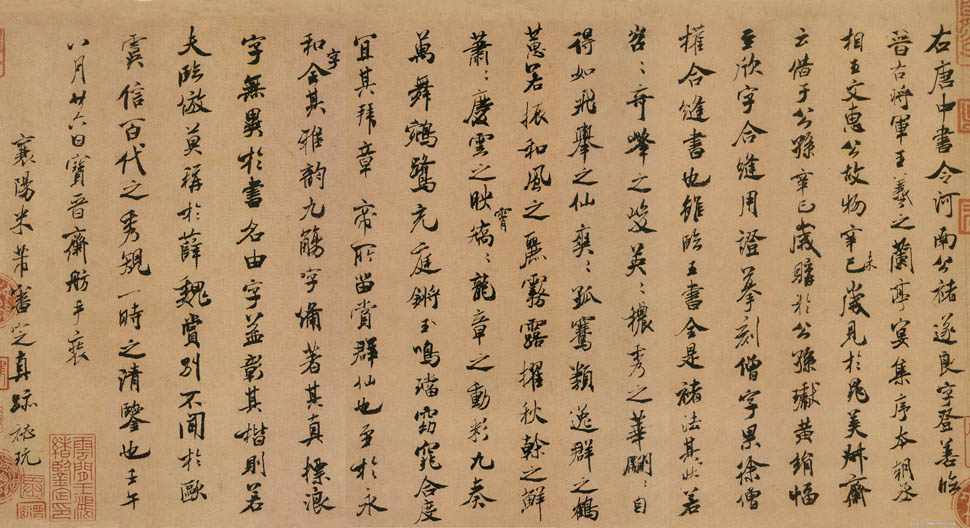 右唐中書令河南公褚遂良字登善臨
晉右將軍王羲之蘭亭宴集序本朝丞
相王文惠公故物辛巳歲見於晁美叔齋
未
云借于公孫辛巳歲購於公孫瓛黃絹幅
至欣字合縫用證摹刻僧字果徐僧
權合縫書也雖臨王書全是褚法其狀若
岩〻奇峰之峻英〻穠秀之華翩〻自
得如飛舉之仙爽〻孤騫類逸群之鶴
蕙若振和風之麗霧露擢秋幹之鮮
蕭〻慶雲之映霄矯〻龍章之動彩九奏
萬舞鵷鷺充庭鏘玉鳴璫窈窕合度
宜其拜章帝所留賞群仙也至於永
和字全其雅韻九觴字備著其真摽浪
字無異於書名由字益彰其楷則若
夫臨倣莫稱於薛魏賞別不聞於歐
虞信百代之秀規一時之清鑒也壬午
八月廿六日寶晉齋舫手裝
襄陽米芾審定真跡祕玩